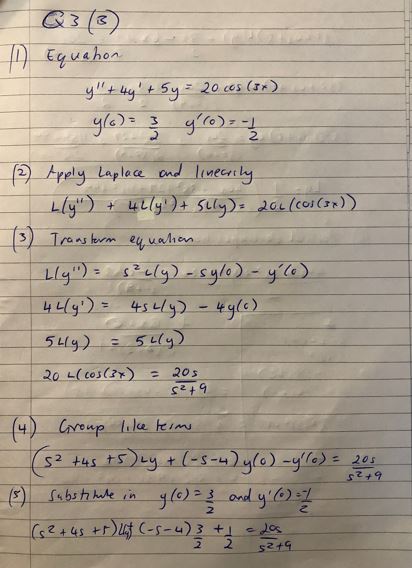 Q3 (B)
(1) Equation
y'' + 4y' + 5y = 20 cos(3x)
y(0) = 3/2 y'(0) = -1/2
(2) Apply Laplace and linearity
L(y'') + 4L(y') + 5L(y) = 20L(cos(3x))
(3) Transform equation
L(y'') = s² L(y) - sy(0) - y'(0)
4L(y') = 4sL(y) - 4y(0)
5L(y) = 5L(y)
20 L(cos(3x) = 20s/s²+9
(4) Group like terms
(s² + 4s + 5)Ly + (-s-4) y(0) - y'(0) = 20s/s²+9
(5) Substitute in y(0) = 3/2 and y'(0) = -1/2
(s² + 4s + 5) (-s-4) 3/2 + 1/2 = 20s/s²+9